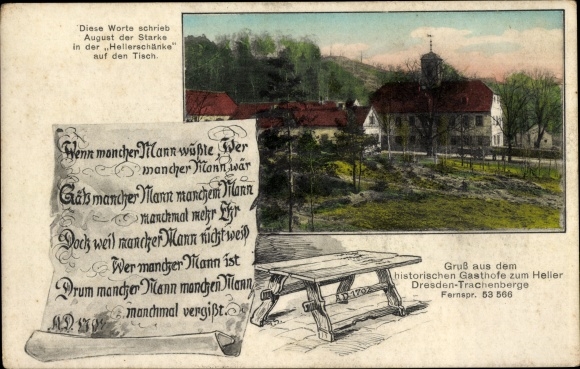 Diese Worte schrieb
August der Starke
in der „Hellerschänke"
auf den Tisch.
Wenn mancher Mann wüßte Wer
mancher Mann wär
Gäb mancher Mann manchem Mann
manchmal mehr Ehr
Doch weil mancher Mann nicht weiß
Wer mancher Mann ist
Drum mancher Mann manchen Mann
manchmal vergißt.
A.D. 1702
1702
Gruß aus dem
historischen Gasthofe zum Heller
Dresden-Trachenberge
Fernspr. 53 566